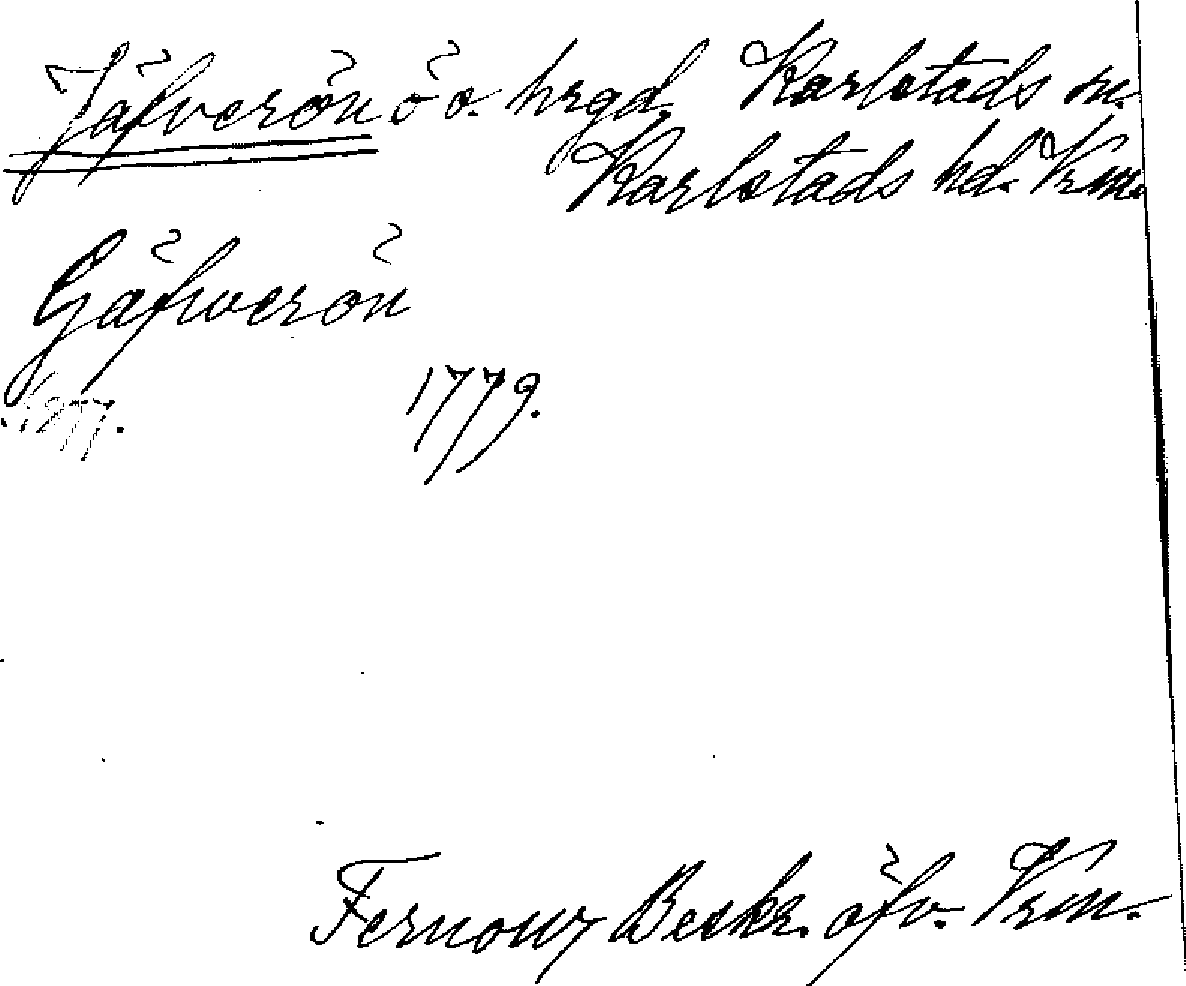 Jäfverön ö o. hrgd. Karlstads sn.
Karlstads hd. Vrm.
Gäfwerön
s. 277. 1779.
Fernow Beskr. öfv. Vrm.